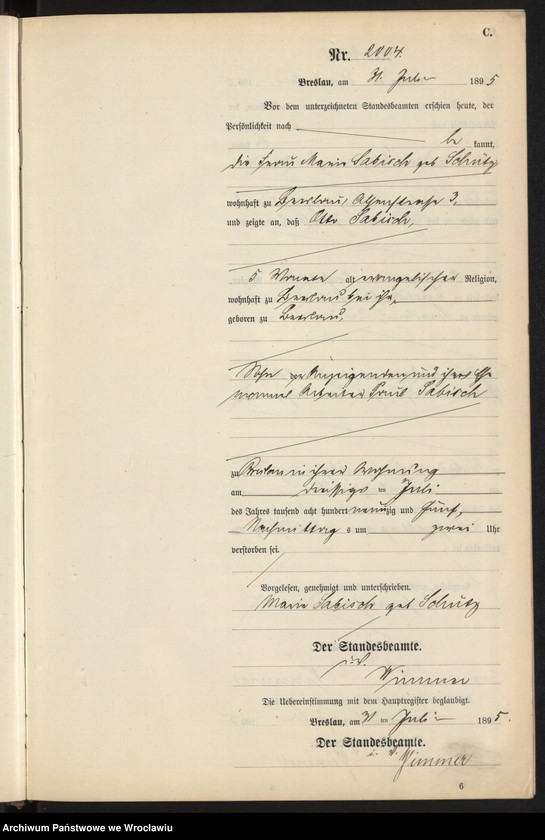 C.
Nr. 2004.
Breslau, am 31. Juli 1895
Vor dem unterzeichneten Standesbeamten erschien heute, der
Persönlichkeit nach be kannt,
die Frau Marie Sabisch geb. Schütz
wohnhaft zu Breslau, Alsenstraße 3,
und zeigte an, daß Otto Sabisch,
5 Monate alt evangelischer Religion,
wohnhaft zu Breslau bei ihr,
geboren zu Breslau,
Sohn der Anzeigenden und ihres Ehe
mannes Arbeiter Paul Sabisch
zu Breslau in ihrer Wohnung
am dreißigsten Juli
des Jahres tausend acht hundert neunzig und fünf,
Nachmittags um zwei Uhr
verstorben sei.
Vorgelesen, genehmigt und unterschrieben.
Marie Sabisch geb Schütz
Der Standesbeamte.
i. V.
Wimmer
Die Uebereinstimmung mit dem Hauptregister beglaubigt.
Breslau, am 31 ten Juli 1895.
Der Standesbeamte.
i. V. Wimmer
6
Archiwum Państwowe we Wrocławiu